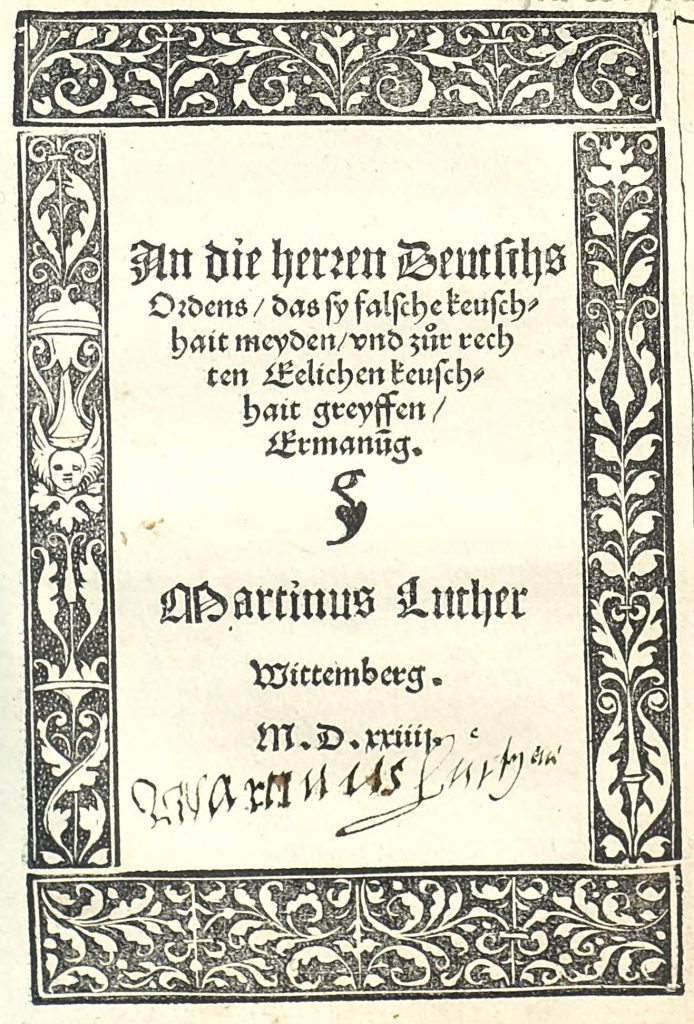 An die herren Deutschs
Ordens / das sy falsche keusch-
hait meyden / vnd zůr rech
ten Eelichen keusch-
hait greyffen /
Ermanūg.
Martinus Luther
Wittemberg.
M. D. xxiiij.
Martinus Luther